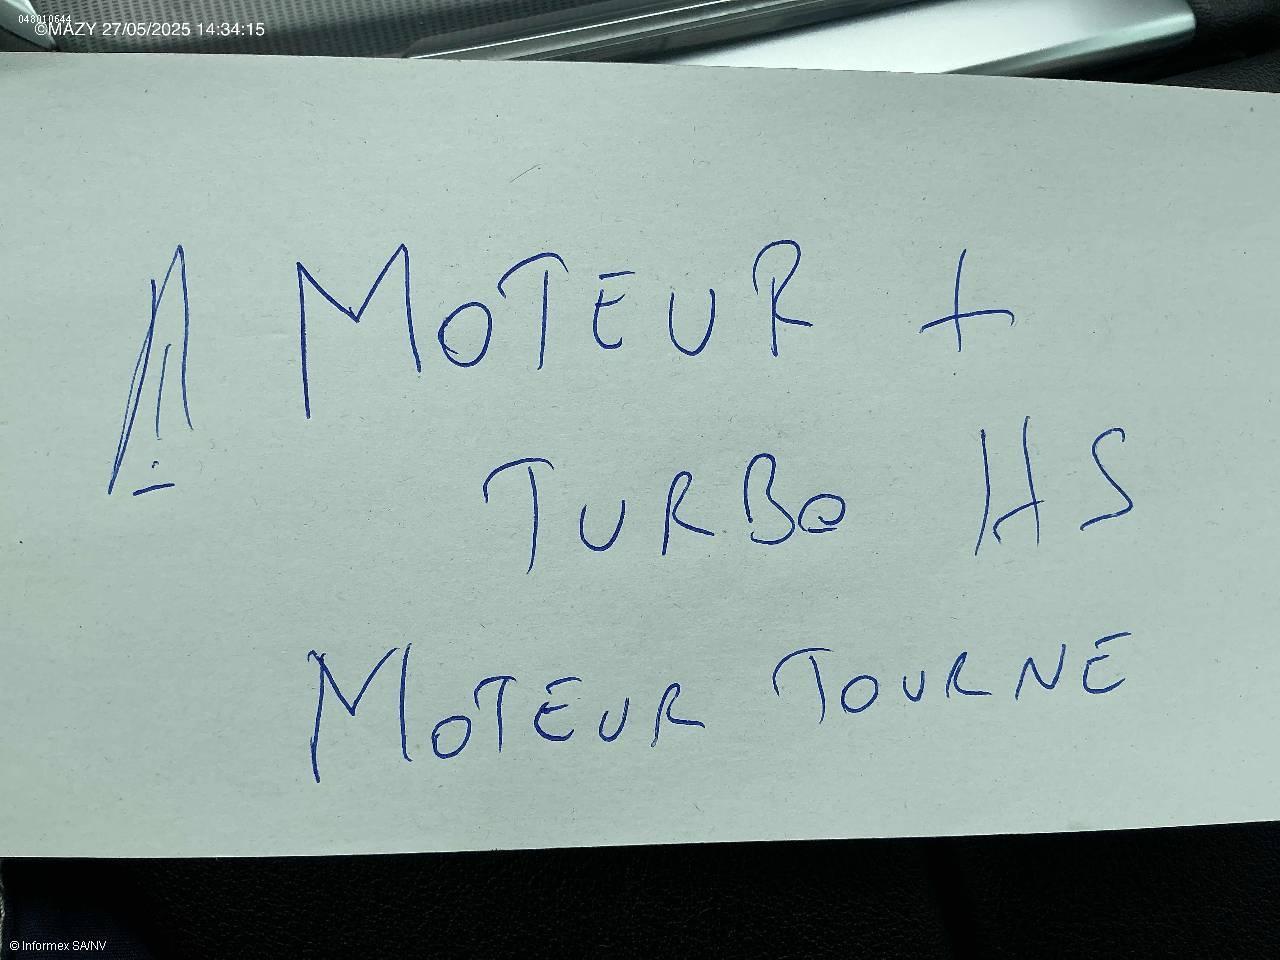 048010644
©MAZY 27/05/2025 14:34:15
MOTEUR +
TURBO HS
MOTEUR TOURNE
© Informex SA/NV